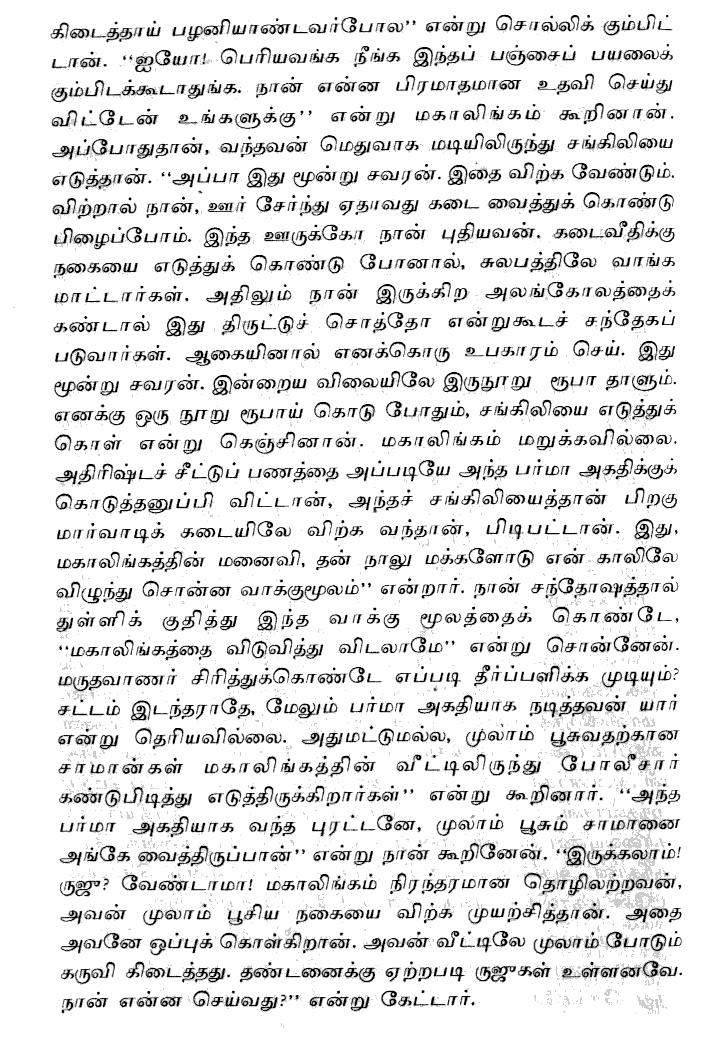 கிடைத்தாய் பழனியாண்டவர்போல” என்று சொல்லிக் கும்பிட்
டான். “ஐயோ! பெரியவங்க நீங்க இந்தப் பஞ்சைப் பயலைக்
கும்பிடக்கூடாதுங்க. நான் என்ன பிரமாதமான உதவி செய்து
விட்டேன் உங்களுக்கு” என்று மகாலிங்கம் கூறினான்.
அப்போதுதான், வந்தவன் மெதுவாக மடியிலிருந்து சங்கிலியை
எடுத்தான். “அப்பா இது மூன்று சவரன். இதை விற்க வேண்டும்.
விற்றால் நான், ஊர் சேர்ந்து ஏதாவது கடை வைத்துக் கொண்டு
பிழைப்போம். இந்த ஊருக்கோ நான் புதியவன். கடைவீதிக்கு
நகையை எடுத்துக் கொண்டு போனால், சுலபத்திலே வாங்க
மாட்டார்கள். அதிலும் நான் இருக்கிற அலங்கோலத்தைக்
கண்டால் இது திருட்டுச் சொத்தோ என்றுகூடச் சந்தேகப்
படுவார்கள். ஆகையினால் எனக்கொரு உபகாரம் செய். இது
மூன்று சவரன். இன்றைய விலையிலே இருநூறு ரூபா தாளும்.
எனக்கு ஒரு நூறு ரூபாய் கொடு போதும், சங்கிலியை எடுத்துக்
கொள் என்று கெஞ்சினான். மகாலிங்கம் மறுக்கவில்லை.
அதிரிஷ்டச் சீட்டுப் பணத்தை அப்படியே அந்த பர்மா அகதிக்குக்
கொடுத்தனுப்பி விட்டான், அந்தச் சங்கிலியைத்தான் பிறகு
மார்வாடிக் கடையிலே விற்க வந்தான், பிடிபட்டான். இது,
மகாலிங்கத்தின் மனைவி, தன் நாலு மக்களோடு என் காலிலே
விழுந்து சொன்ன வாக்குமூலம்” என்றார். நான் சந்தோஷத்தால்
துள்ளிக் குதித்து இந்த வாக்கு மூலத்தைக் கொண்டே,
“மகாலிங்கத்தை விடுவித்து விடலாமே” என்று சொன்னேன்.
மருதவாணர் சிரித்துக்கொண்டே எப்படி தீர்ப்பளிக்க முடியும்?
சட்டம் இடந்தராதே, மேலும் பர்மா அகதியாக நடித்தவன் யார்
என்று தெரியவில்லை. அதுமட்டுமல்ல, முலாம் பூசுவதற்கான
சாமான்கள் மகாலிங்கத்தின் வீட்டிலிருந்து போலீசார்
கண்டுபிடித்து எடுத்திருக்கிறார்கள்” என்று கூறினார். “அந்த
பர்மா அகதியாக வந்த புரட்டனே, முலாம் பூசும் சாமானை
அங்கே வைத்திருப்பான்” என்று நான் கூறினேன். “இருக்கலாம்!
ருஜு? வேண்டாமா! மகாலிங்கம் நிரந்தரமான தொழிலற்றவன்,
அவன் முலாம் பூசிய நகையை விற்க முயற்சித்தான். அதை
அவனே ஒப்புக் கொள்கிறான். அவன் வீட்டிலே முலாம் போடும்
கருவி கிடைத்தது. தண்டனைக்கு ஏற்றபடி ருஜுகள் உள்ளனவே.
நான் என்ன செய்வது?” என்று கேட்டார்.